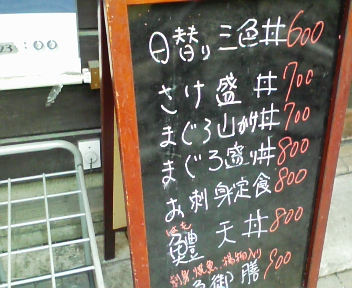 23:00
日替り三色丼600
さけ盛丼700
まぐろ山かけ丼700
まぐろ盛り丼800
お刺身定食800
はも
鱧天丼800
刺身 焼魚、揚物入り
御膳900